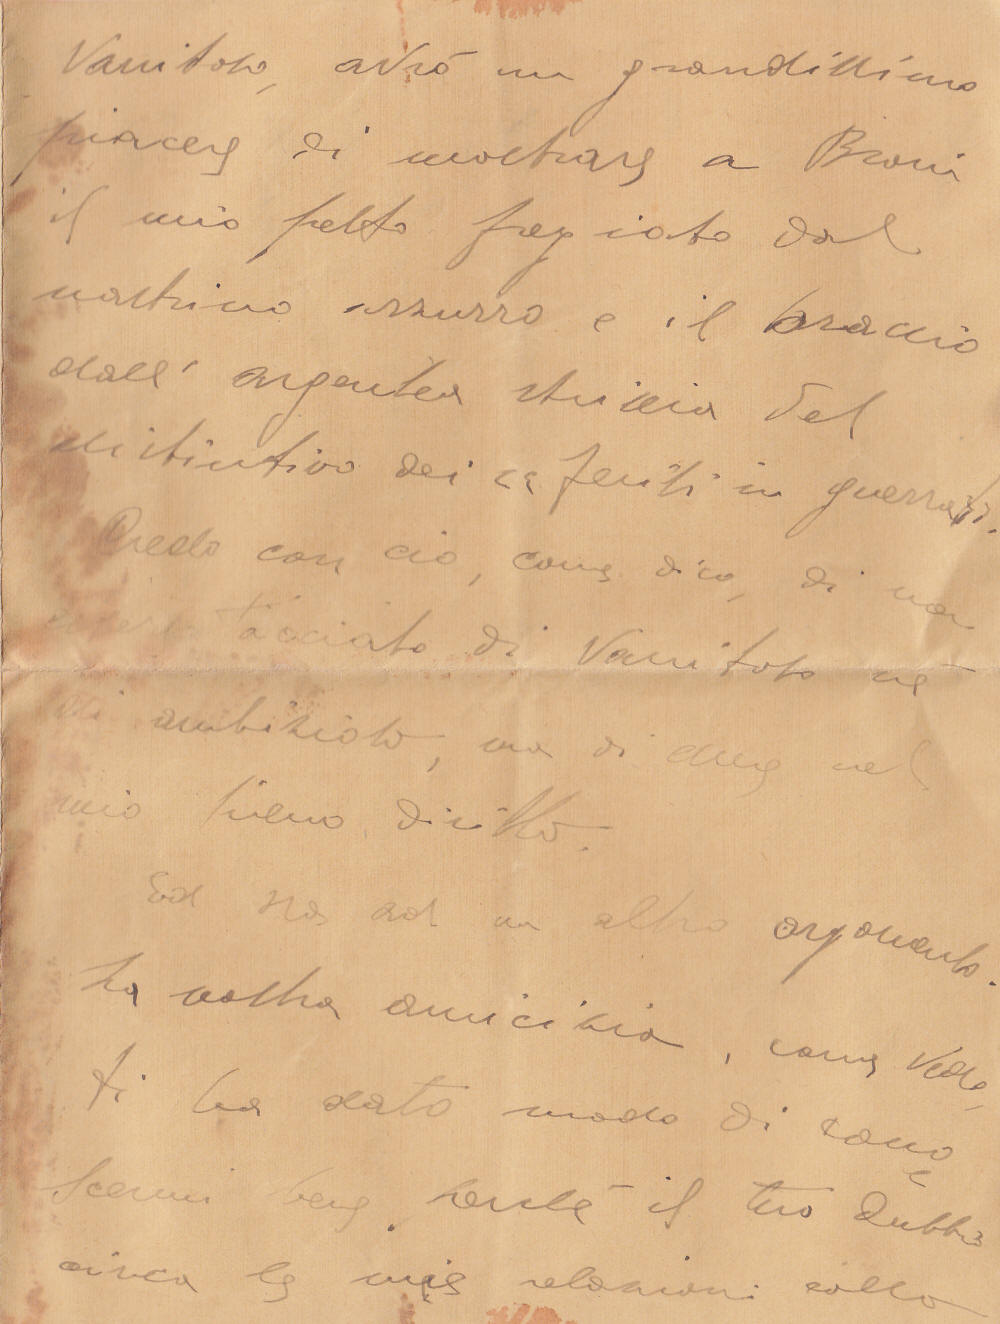 vanitoso, avrò un grandissimo
piacere di mostrare a Broni
il mio petto fregiato dal
nastrino azzurro e il braccio
dall' argentea striscia del
distintivo dei feriti in guerra.
Credo con ciò, come dico, di non
essere tacciato di vanitoso nè
di ambizioso, ma di essere nel
mio pieno diritto.
Ed ora ad un altro argomento.
La nostra amicizia, come vedo,
ti ha dato modo di cono
scermi bene, perchè il tuo dubbio
circa le mie relazioni colla